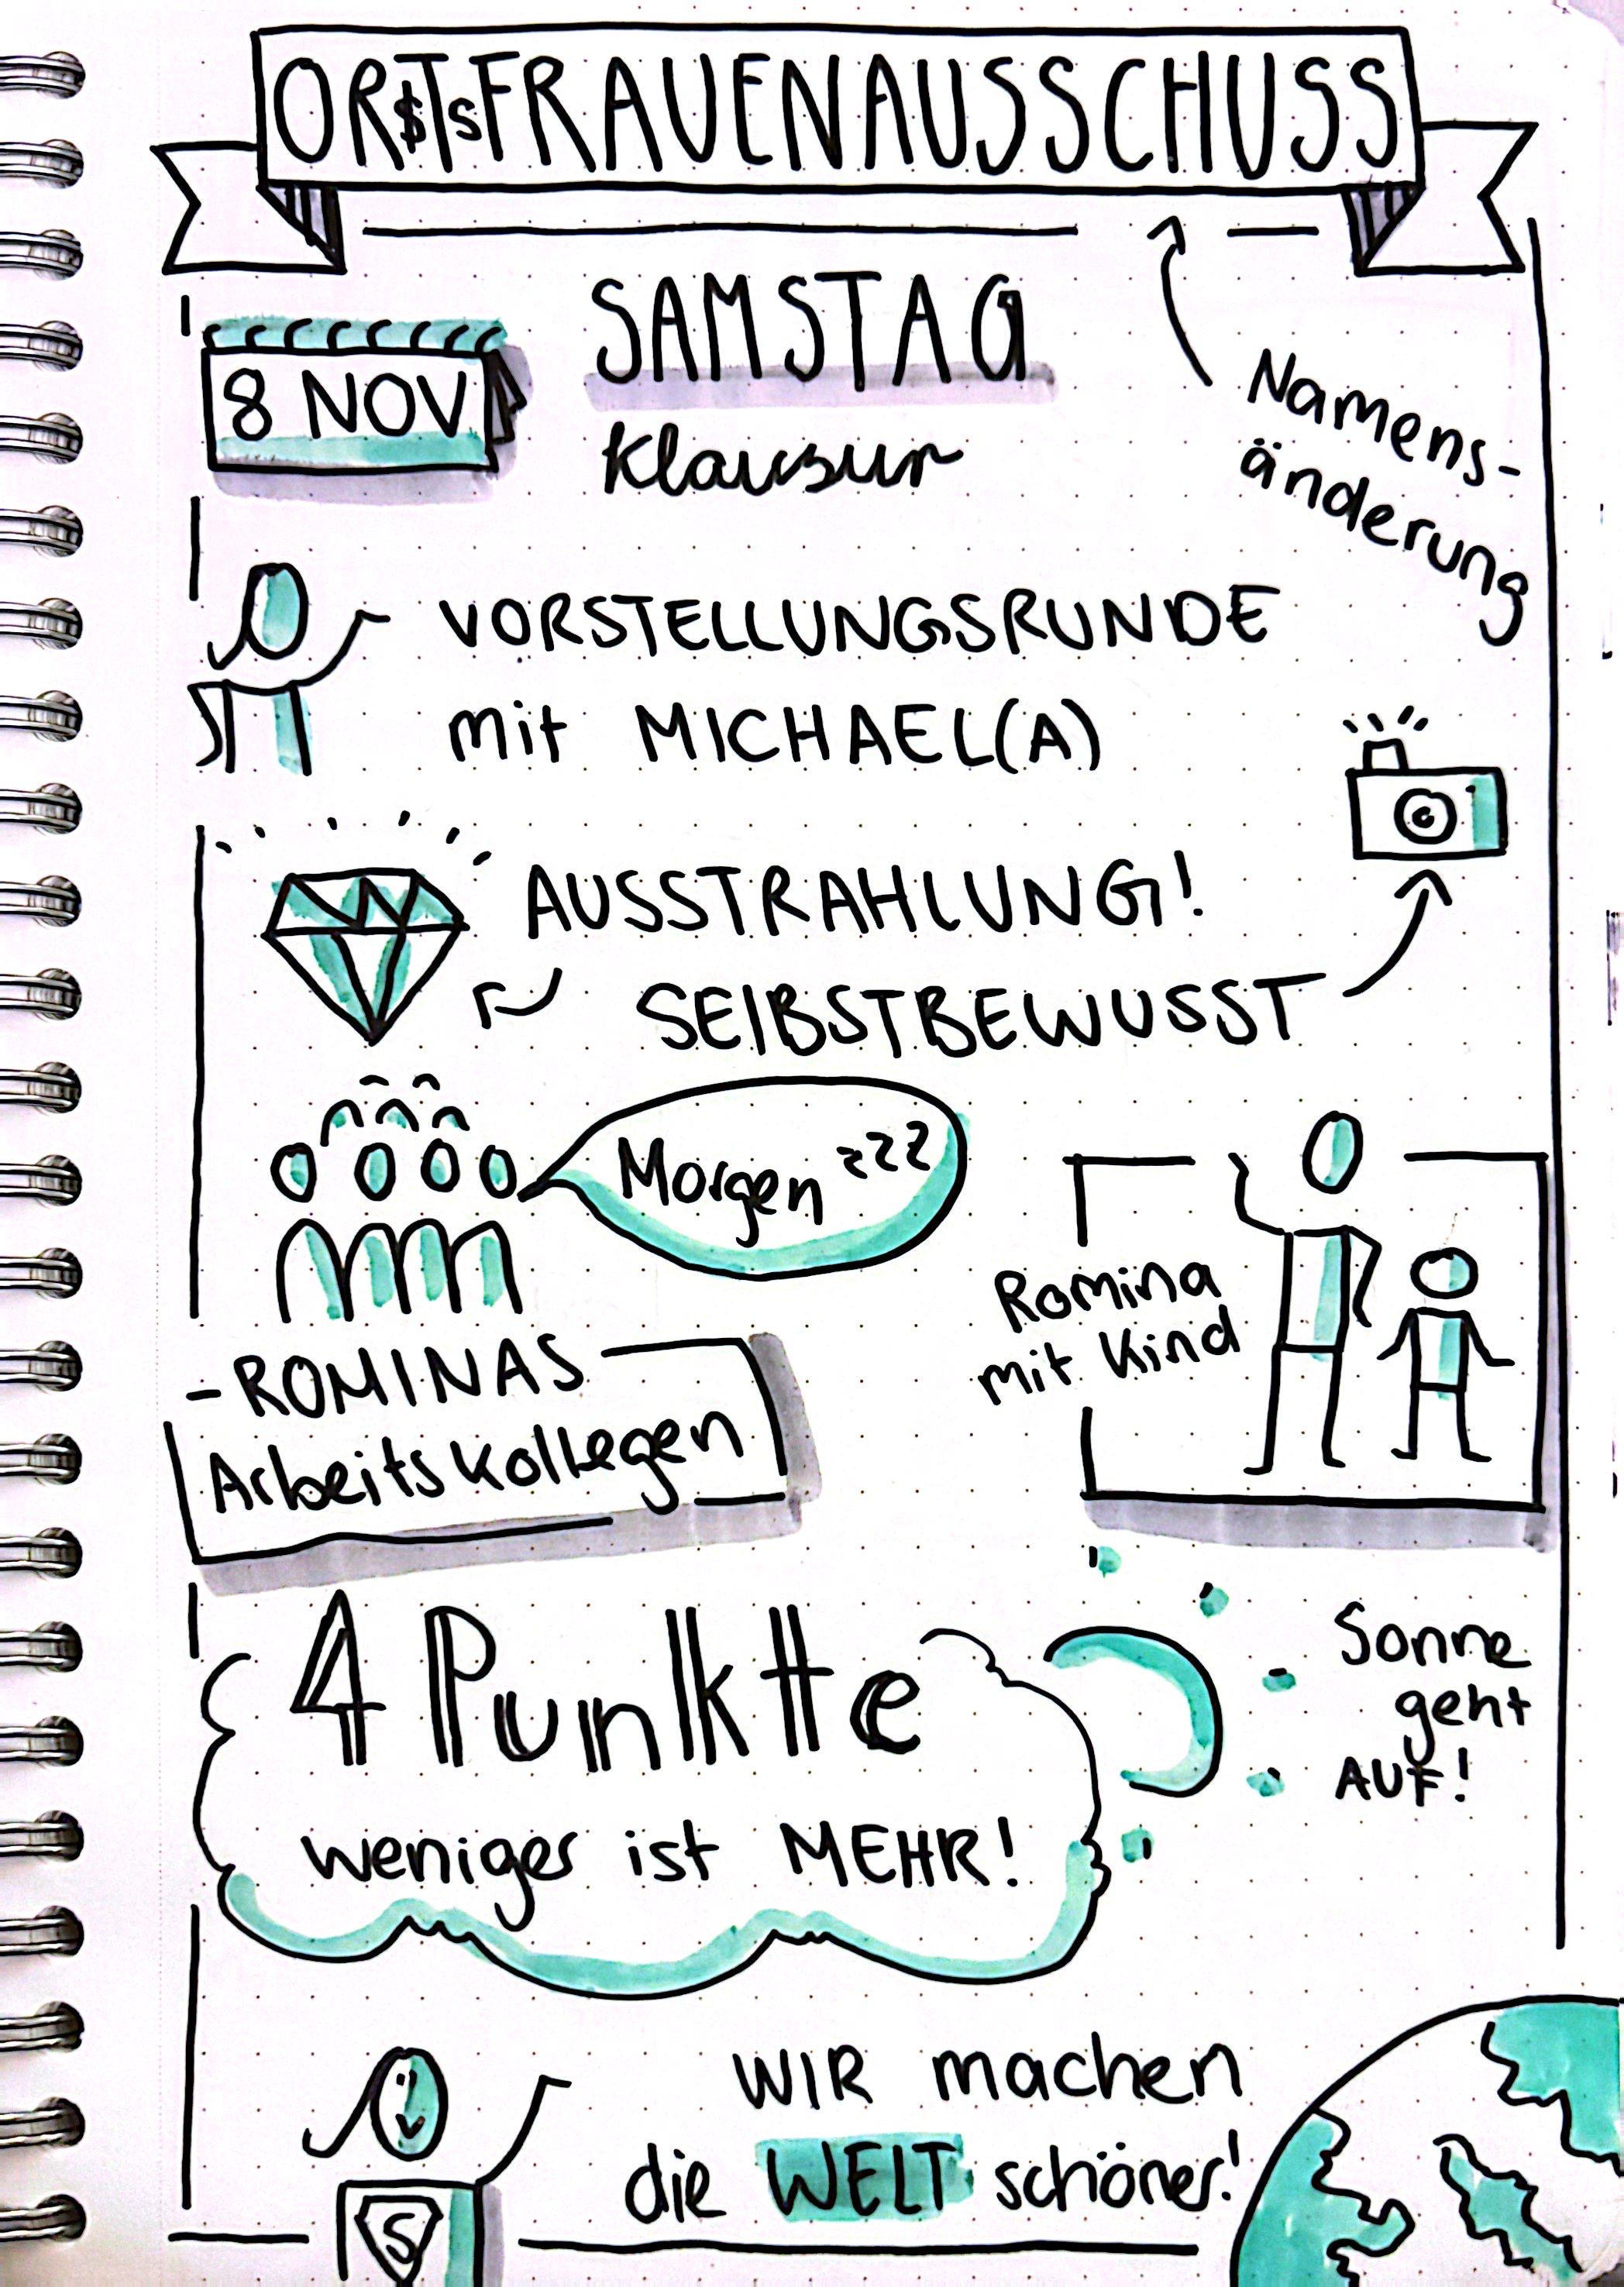 ORTSFRAUENAUSSCHUSS
8 NOV
SAMSTAG
Klausur
Namens-
änderung
VORSTELLUNGSRUNDE
mit MICHAEL(A)
AUSSTRAHLUNG!
SELBSTBEWUSST
Morgen zzz
Romina
mit Kind
-ROMINAS
Arbeitskollegen
4 Punkte
weniger ist MEHR!
Sonne
geht
AUF!
WIR machen
die WELT schöner!
S